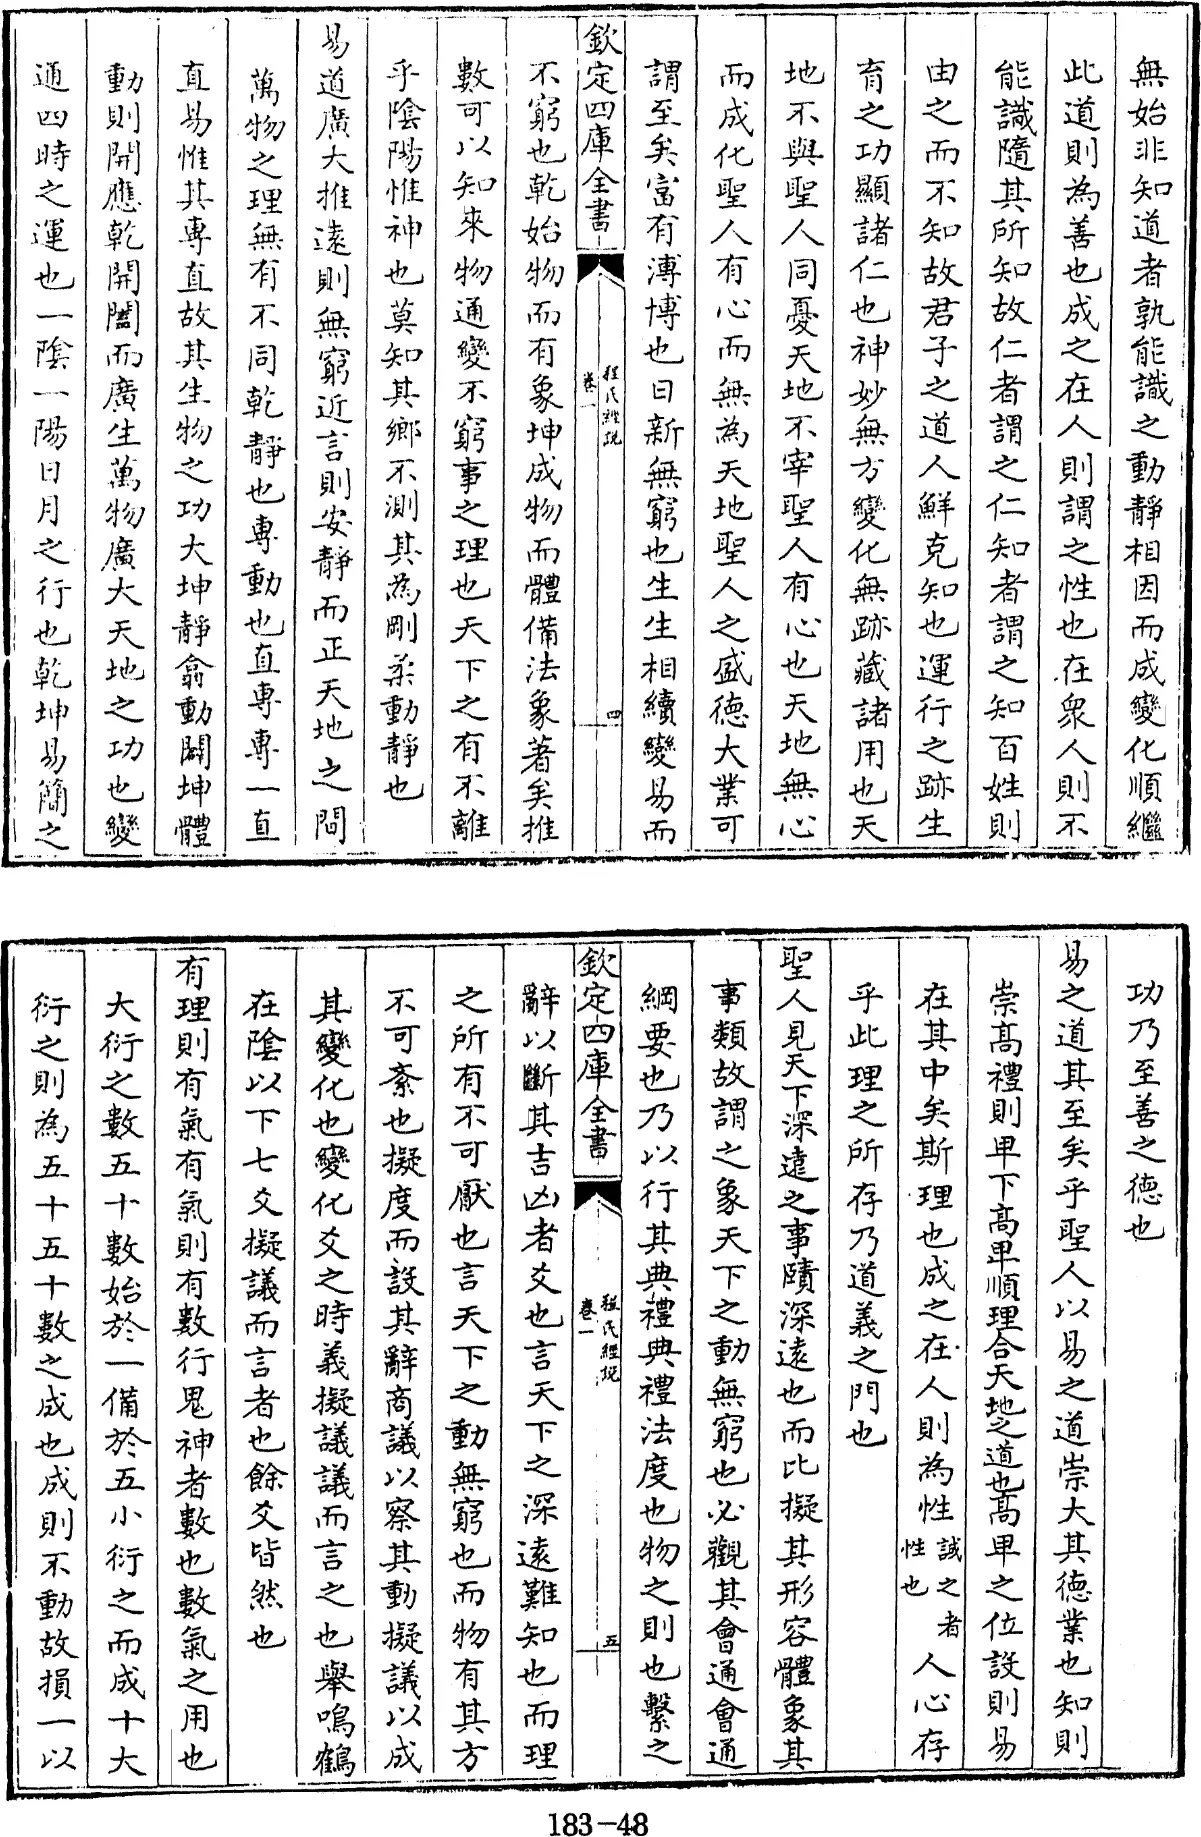 無始非知道者孰能識之動靜相因而成變化順繼
此道則為善也成之在人則謂之性也在衆人則不
能識隨其所知故仁者謂之仁知者謂之知百姓則
由之而不知故君子之道人鮮克知也運行之跡生
育之功顯諸仁也神妙無方變化無跡藏諸用也天
地不與聖人同憂天地不宰聖人有心也天地無心
而成化聖人有心而無為天地聖人之盛德大業可
謂至矣富有溥博也日新無窮也生生相續變易而
欽定四庫全書
程氏經說
卷一
四
不窮也乾始物而有象坤成物而體備法象著矣推
數可以知來物通變不窮事之理也天下之有不離
乎陰陽惟神也莫知其鄉不測其為剛柔動靜也
易道廣大推遠則無窮近言則安靜而正天地之間
萬物之理無有不同乾靜也專動也直專專一直
直易惟其專直故其生物之功大坤靜翕動闢坤體
動則開應乾開闔而廣生萬物廣大天地之功也變
通四時之運也一陰一陽日月之行也乾坤易簡之
功乃至善之德也
易之道其至矣乎聖人以易之道崇大其德業也知則
崇高禮則卑下高卑順理合天地之道也高卑之位設則易
在其中矣斯理也成之在人則為性誠之者性也人心存
乎此理之所存乃道義之門也
聖人見天下深遠之事賾深遠也而比擬其形容體象其
事類故謂之象天下之動無窮也必觀其會通會通
綱要也乃以行其典禮典禮法度也物之則也繫之
欽定四庫全書
程氏經說
卷一
五
辭以斷其吉凶者爻也言天下之深遠難知也而理
之所有不可厭也言天下之動無窮也而物有其方
不可紊也擬度而設其辭商議以察其動擬議以成
其變化也變化爻之時義擬議議而言之也舉鳴鶴
在陰以下七爻擬議而言者也餘爻皆然也
有理則有氣有氣則有數行鬼神者數也數氣之用也
大衍之數五十數始於一備於五小衍之而成十大
衍之則為五十五十數之成也成則不動故損一以
183-48